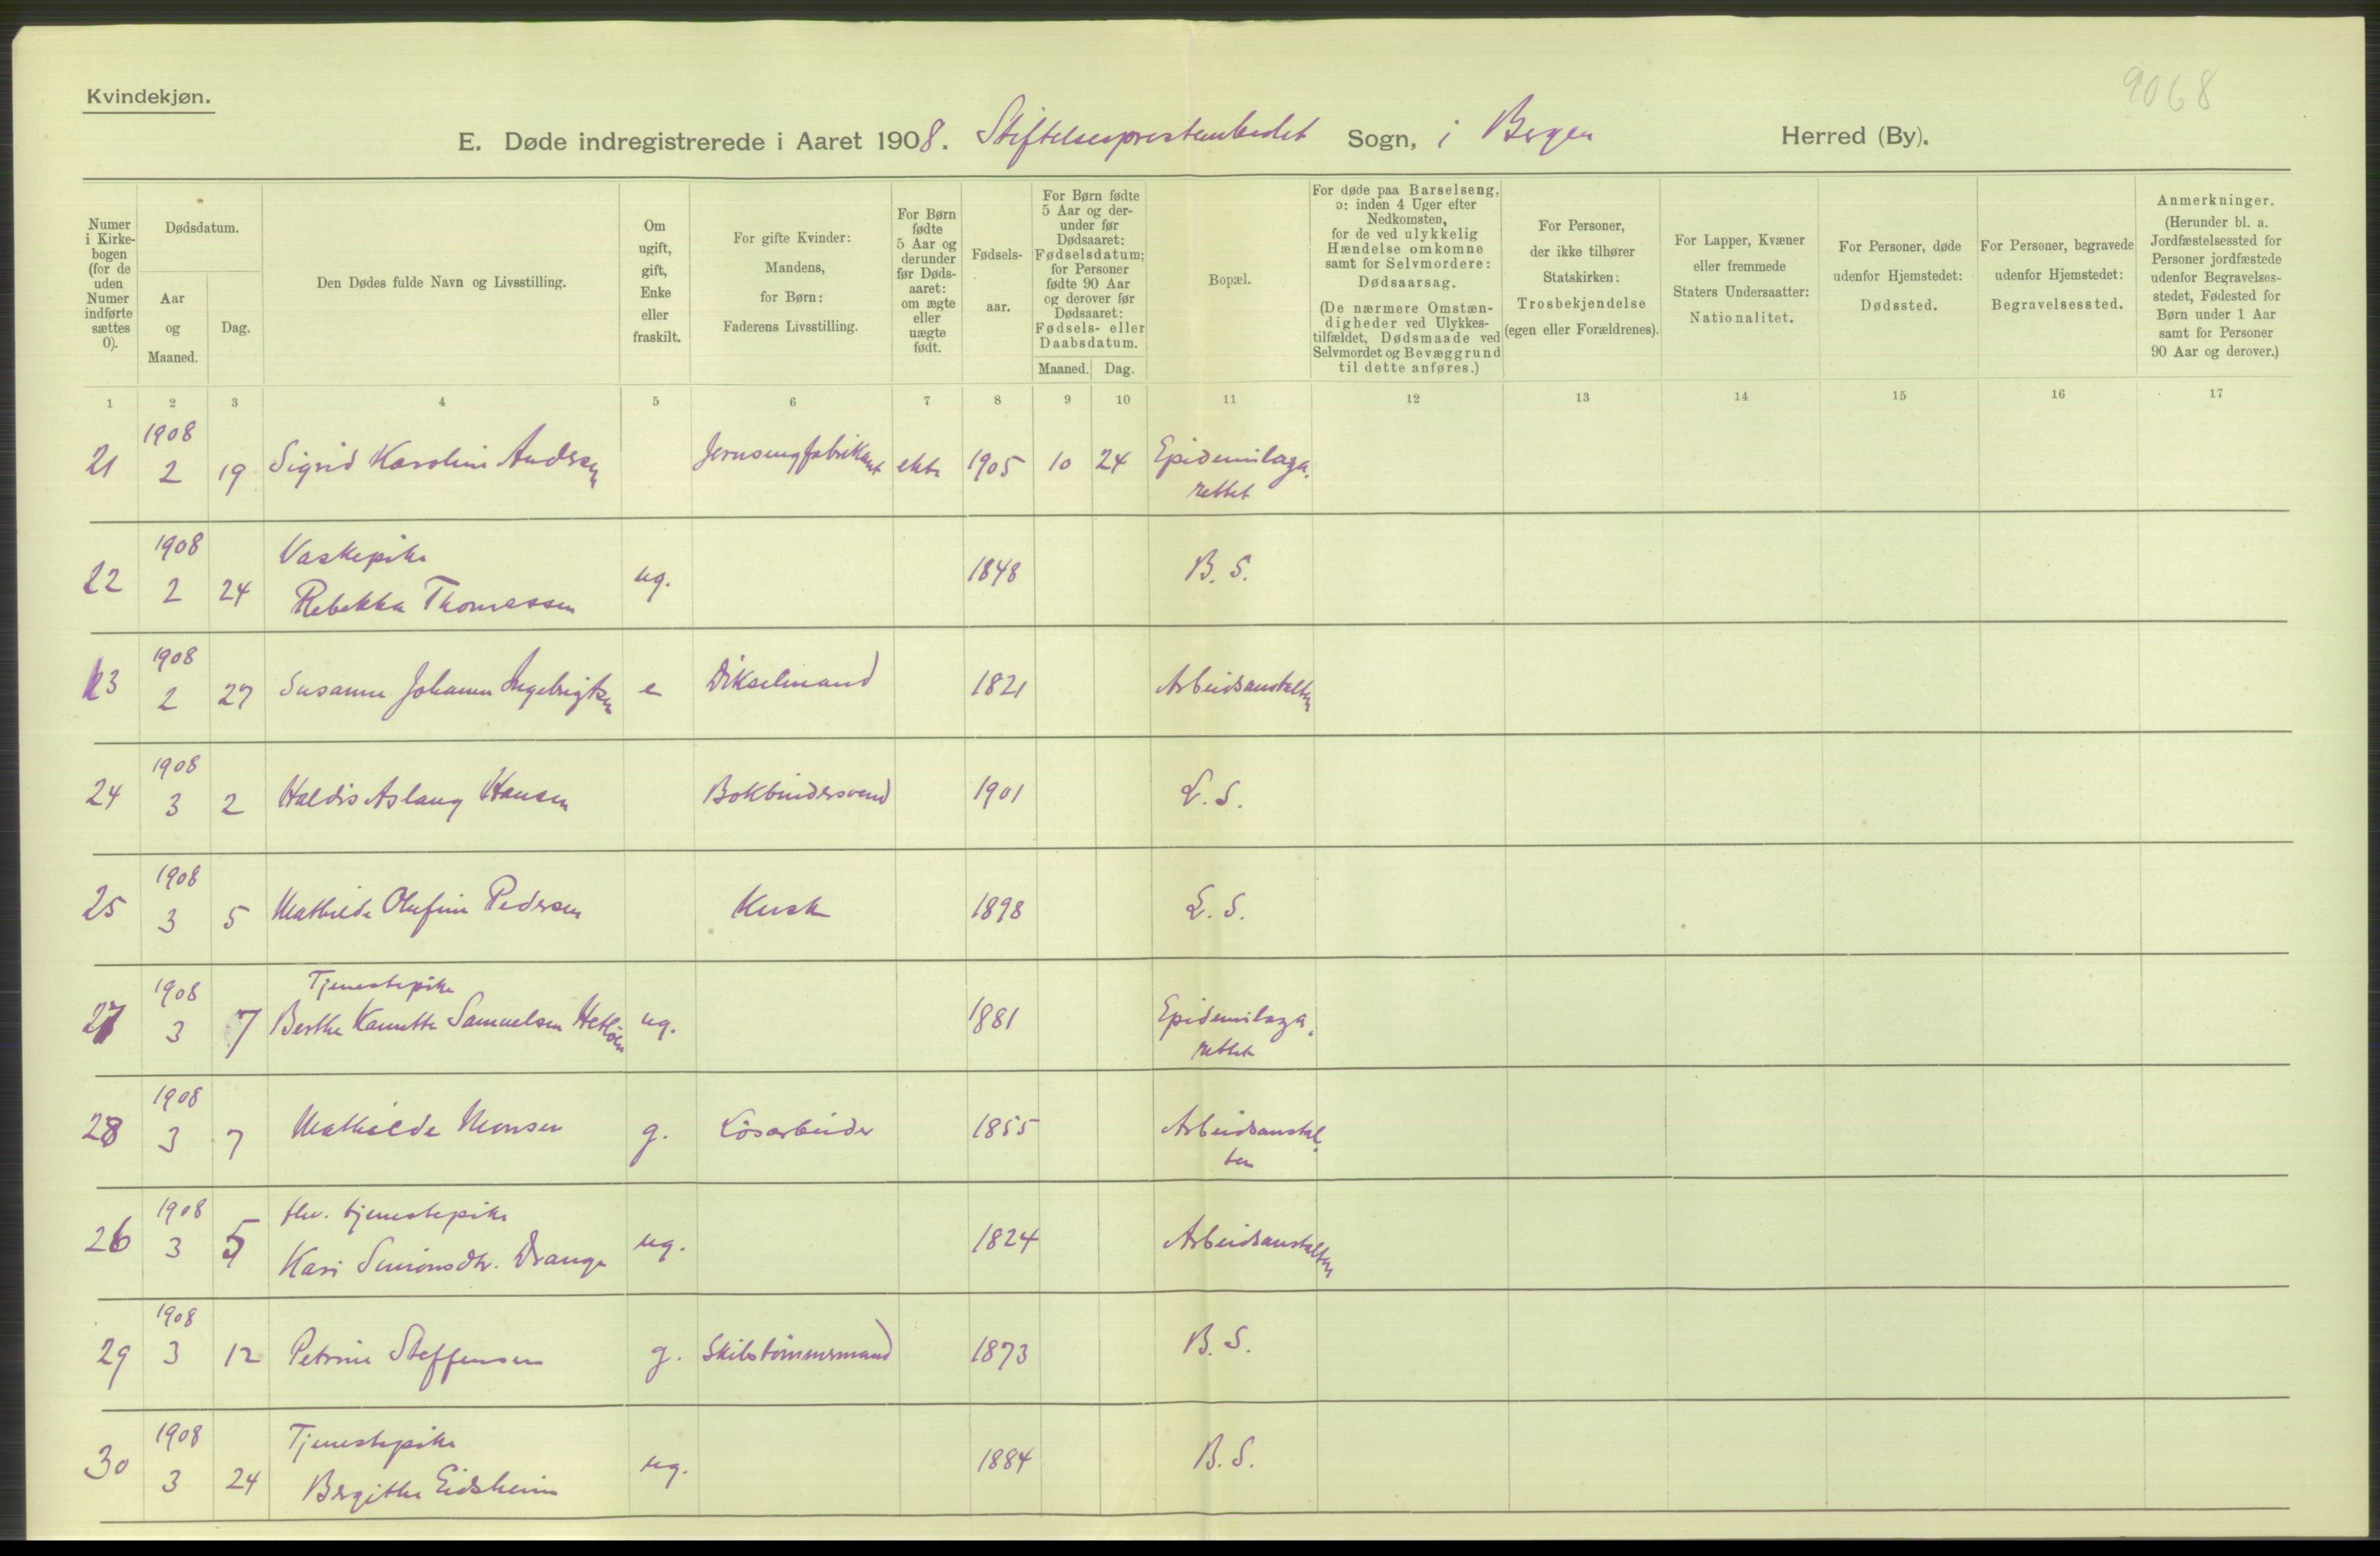 Kvindekjøn.
9068
E. Døde indregistrerede i Aaret 1908. Stiftelsesprestembedet Sogn, i Bergen Herred (By).
Numer i Kirkebogen (for de uden Numer indførte sættes 0).
Dødsdatum.
Aar og Maaned.
Dag.
Den Dødes fulde Navn og Livsstilling.
Om ugift, gift, Enke eller fraskilt.
For gifte Kvinder: Mandens, for Børn: Faderens Livsstilling.
For Børn fødte 5 Aar og derunder før Dødsaaret: om ægte eller uægte født.
Fødselsaar.
For Børn fødte 5 Aar og derunder før Dødsaaret: Fødselsdatum; for Personer fødte 90 Aar og derover før Dødsaaret: Fødsels- eller Daabsdatum.
Maaned. Dag.
Bopæl.
For døde paa Barselseng, ɔ: inden 4 Uger efter Nedkomsten, for de ved ulykkelig Hændelse omkomne samt for Selvmordere: Dødsaarsag.
(De nærmere Omstændigheder ved Ulykkestilfældet, Dødsmaade ved Selvmordet og Bevæggrund til dette anføres.)
For Personer, der ikke tilhører Statskirken: Trosbekjendelse (egen eller Forældrenes).
For Lapper, Kvæner eller fremmede Staters Undersaatter: Nationalitet.
For Personer, døde udenfor Hjemstedet: Dødssted.
For Personer, begravede udenfor Hjemstedet: Begravelsessted.
Anmerkninger. (Herunder bl. a. Jordfæstelsessted for Personer jordfæstede udenfor Begravelsesstedet, Fødested for Børn under 1 Aar samt for Personer 90 Aar og derover.)
1 2 3 4 5 6 7 8 9 10 11 12 13 14 15 16 17
1908
21 2 19 Sigrid Karoline Andersen Jernsengfabrikant ekte 1905 10 24 Epidemilaza-
rettet
1908 Vaskepike
22 2 24 Rebekka Thomassen ug. 1848 B. S.
1908
23 2 27 Susanne Johanne Ingebrigtsen e Dikselmand 1821 Arbeidsanstalten
1908
24 3 2 Haldis Aslaug Hansen Bokbindersvend 1901 L. S.
1908
25 3 5 Mathilde Olufine Pedersen Kusk 1898 L. S.
1908 Tjenestepike
27 3 7 Berthe Samuelsen ug. 1881 Epidemilaza-
rettet
1908
28 3 7 Mathilde Monsen g. Løsarbeider 1855 Arbeidsanstal-
ten
1908 fhv. tjenestepike
26 3 5 Kari Simonsdtr. Drange ug. 1824 Arbeidsanstalten
1908
29 3 12 Petrine Steffensen g. Skibstømmermand 1873 B. S.
1908 Tjenestepike
30 3 24 Bergithe Eidsheim ug. 1884 B. S.